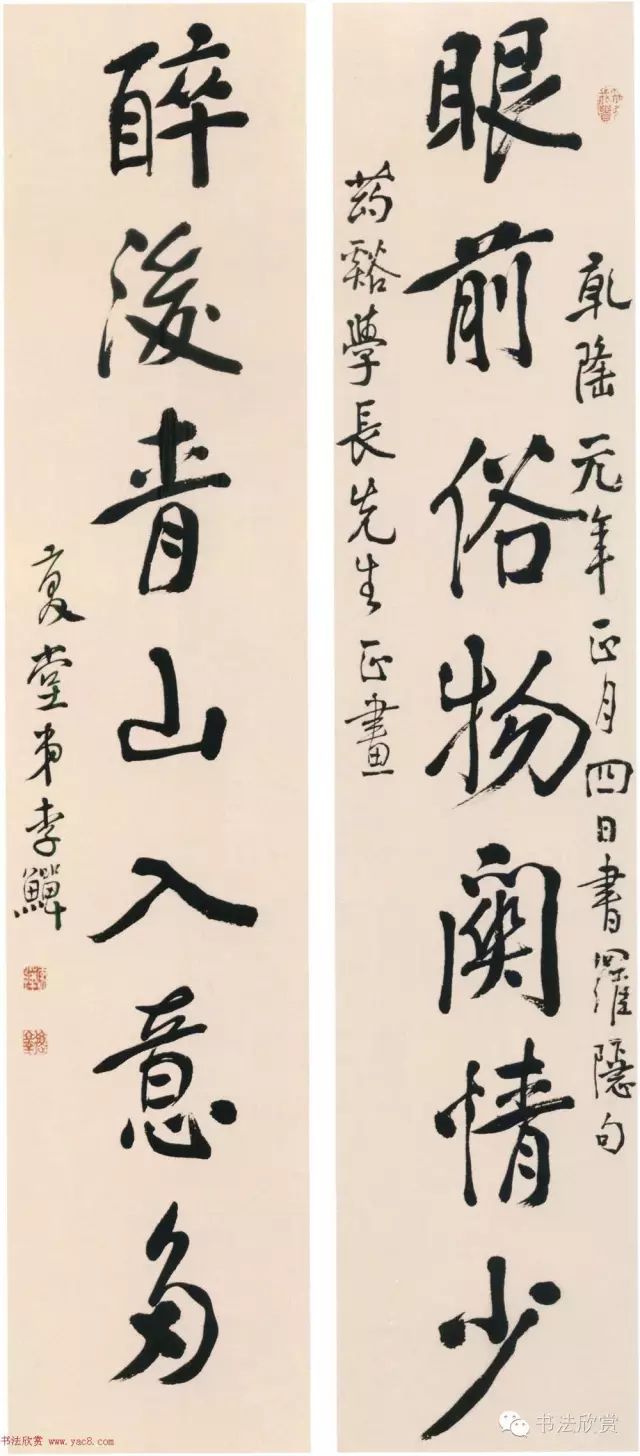 眼前俗物關情少
乾隆元年正月四日書羅隱句
药谿學長先生正畫
醉後青山入意多
復堂弟李鱓
书法欣赏 www.yac8.com
书法欣赏